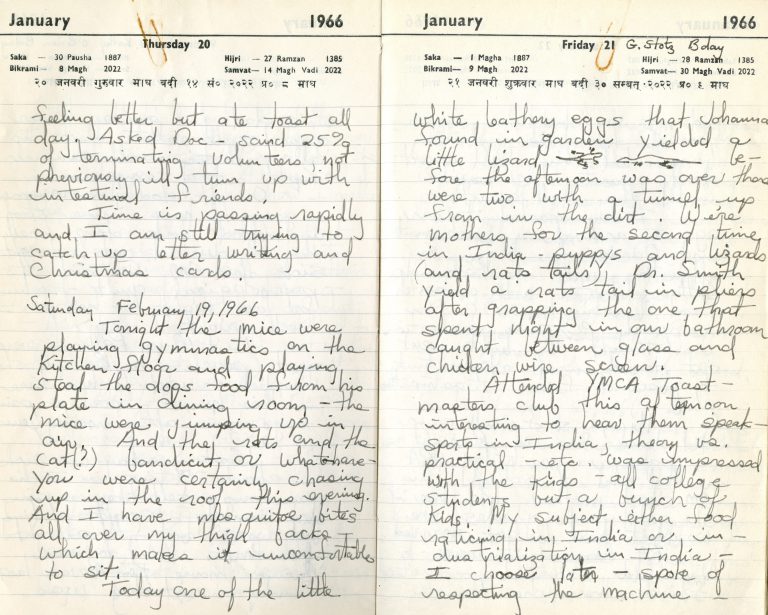 January 1966
Thursday 20
Saka — 30 Pausha 1887 Hijri — 27 Ramzan 1385
Bikrami — 8 Magh 2022 Samvat — 14 Magh Vadi 2022
२० जनवरी गुरुवार माघ बदी १४ सं० २०२२ प्र० ८ माघ
feeling better but ate toast all
day. Asked Doc — said 25%
of terminating volunteers not
previously ill turn up with
intestinal friends.
Time is passing rapidly
and I am still trying to
catch up letter writing and
Christmas cards.
Saturday February 19, 1966
Tonight the mice were
playing gymnastics on the
Kitchen floor and playing
steal the dogs food from his
plate in dining room — the
mice were jumping up in
air. And the rats and the
cat(?) bandicut, or whathave-
you were certainly chasing
up in the roof this evening.
And I have mosquitoe bites
all over my thigh backs
which makes it uncomfortable
to sit.
Today one of the little
January 1966
Friday 21 G. Stotz Bday
Saka — 1 Magha 1887 Hijri — 28 Ramzan 1385
Bikrami — 9 Magh 2022 Samvat — 30 Magh Vadi 2022
२१ जनवरी शुक्रवार माघ बदी ३० सम्बत् २०२२ प्र० ६ माघ
white leathery eggs that Johanna
found in garden yielded a
little lizard be-
fore the afternoon was over there
were two with a tunnel up
from in the dirt. We're
mothers for the second time
in India - puppys and lizards
(and rats tails). Dr. Smith
yield a rats tail in pliers
after grapping the one that
spent night in our bathroom
caught between glass and
chicken wire screen.
Attended YMCA Toast-
masters club this afternoon
interesting to hear them speak —
sports in India, theory vs.
practical — etc. was impressed
with the kids — all college
students but a bunch of
kids. My subject either food
rationing in India or in-
dustrialization in India —
I choose later — spoke of
respecting the machine —